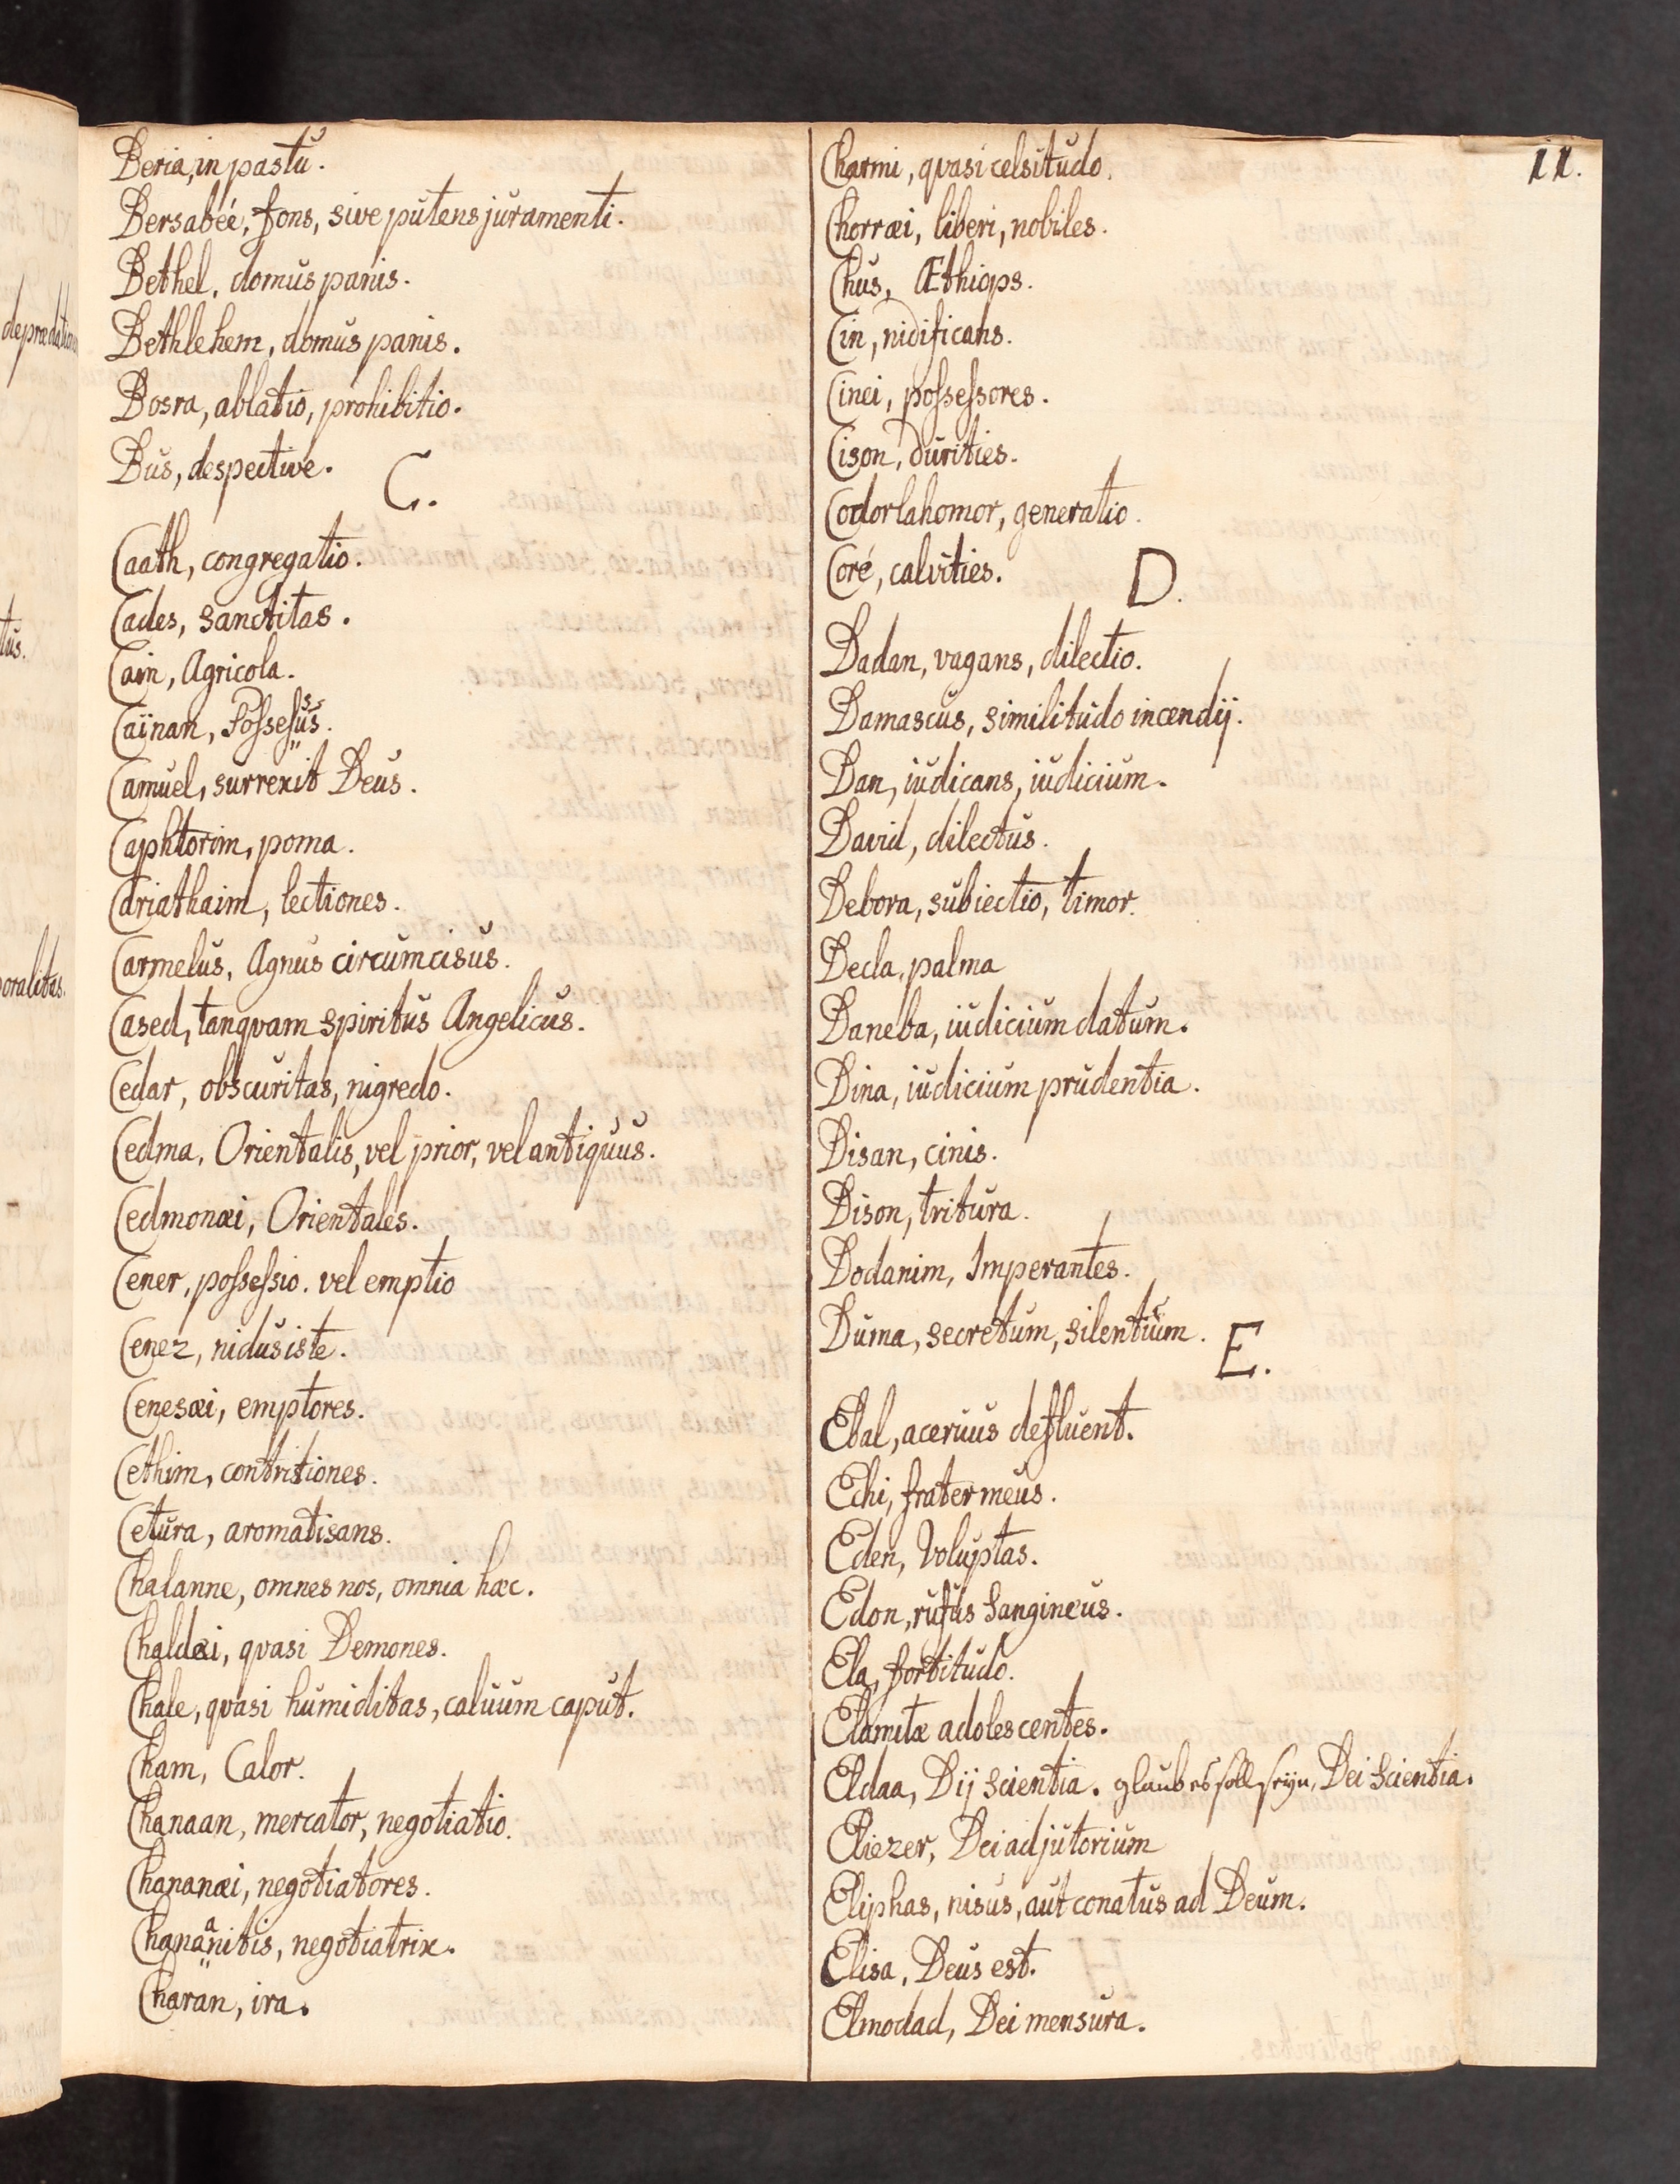 Beria, in pastu.
Bersabéé, fons, sive putens juramenti.
Bethel, domus panis.
Bethlehem, domus panis.
Bosra, ablatio, prohibitio.
Bus, despective.
C.
Caath, congregatio.
Cades, sanctitas.
Cain, Agricola.
Caïnan, Possessus.
Camuel, surrexit Deus.
Caphtorim, poma.
Cariathaim, lectiones.
Carmelus, Agnus circumcisus.
Cased, tanqvam spiritus Angelicus.
Cedar, obscuritas, nigredo.
Cedma, Orientalis, vel prior, vel antiquus.
Cedmonæi, Orientales.
Cener, possessio. vel emptio
Cenez, nidus iste.
Cenesæi, emptores.
Cethim, contritiones.
Cetura, aromatisans.
Chalanne, omnes nos, omnia hæc.
Chaldæi, qvasi Demones.
Chale, qvasi humiditas, caluum caput.
Cham, Calor.
Chanaan, mercator, negotiatio.
Chananæi, negotiatores.
Chananitis, negotiatrix.
Charan, ira.
11.
Charmi, qvasi celsitudo.
Chorræi, liberi, nobiles.
Chus, Æthiops.
Cin, nidificans.
Cinei, possessores.
Cison, durities.
Codorlahomor, generatio.
Coré, calvities.
D.
Dadan, vagans, dilectio.
Damascus, similitudo incendij.
Dan, iudicans, iudicium.
David, dilectus.
Debora, subiectio, timor.
Decla, palma
Daneba, iudicium datum.
Dina, iudicium prudentia.
Disan, cinis.
Dison, tritura.
Dodanim, Imperantes.
Duma, secretum, silentium.
E.
Ebal, aceruus defluent.
Echi, frater meus.
Eden, Voluptas.
Edon, rufus Sangineus.
Ela, fortitudo.
Elamitæ adolescentes.
Eldaa, Dij scientia. glaub es soll seÿn, Dei Scientia.
Eliezer, Dei adjutorium
Eliphas, nisus, aut conatus ad Deum.
Elisa, Deus est.
Elmodad, Dei mensura.